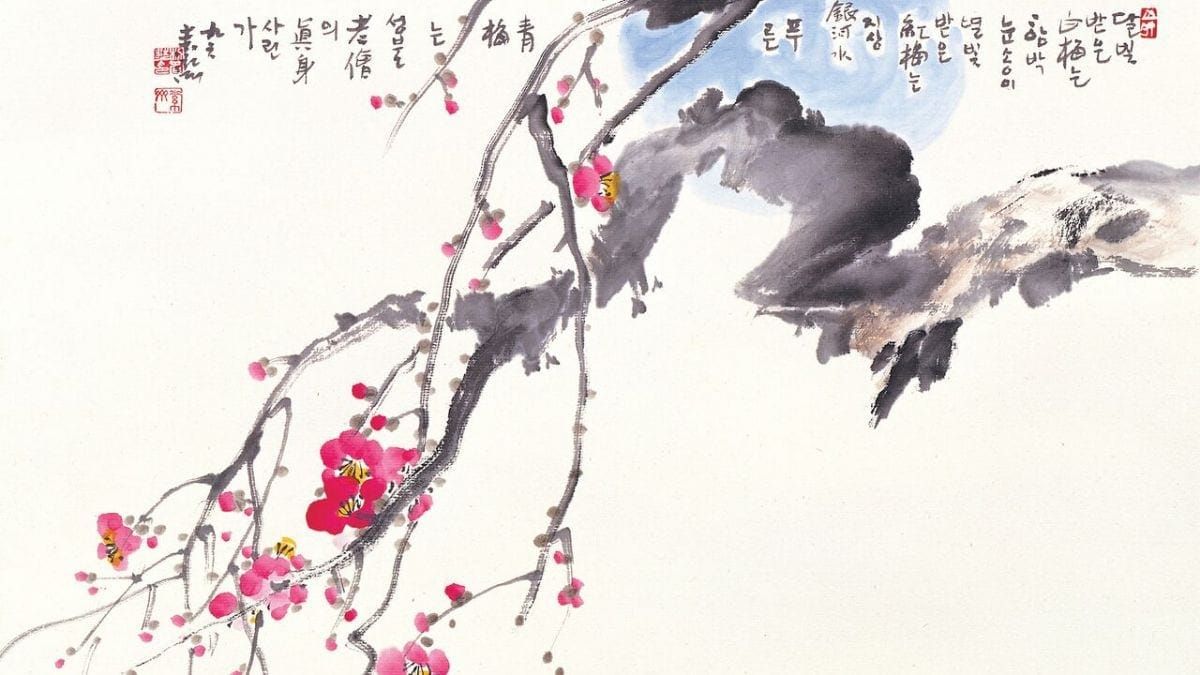 달빛
받은
白梅는
함박
눈송이
별빛
받은
紅梅는
지상
銀河水
푸
른
青
梅
는
성불
老僧
의
眞身
사린
가